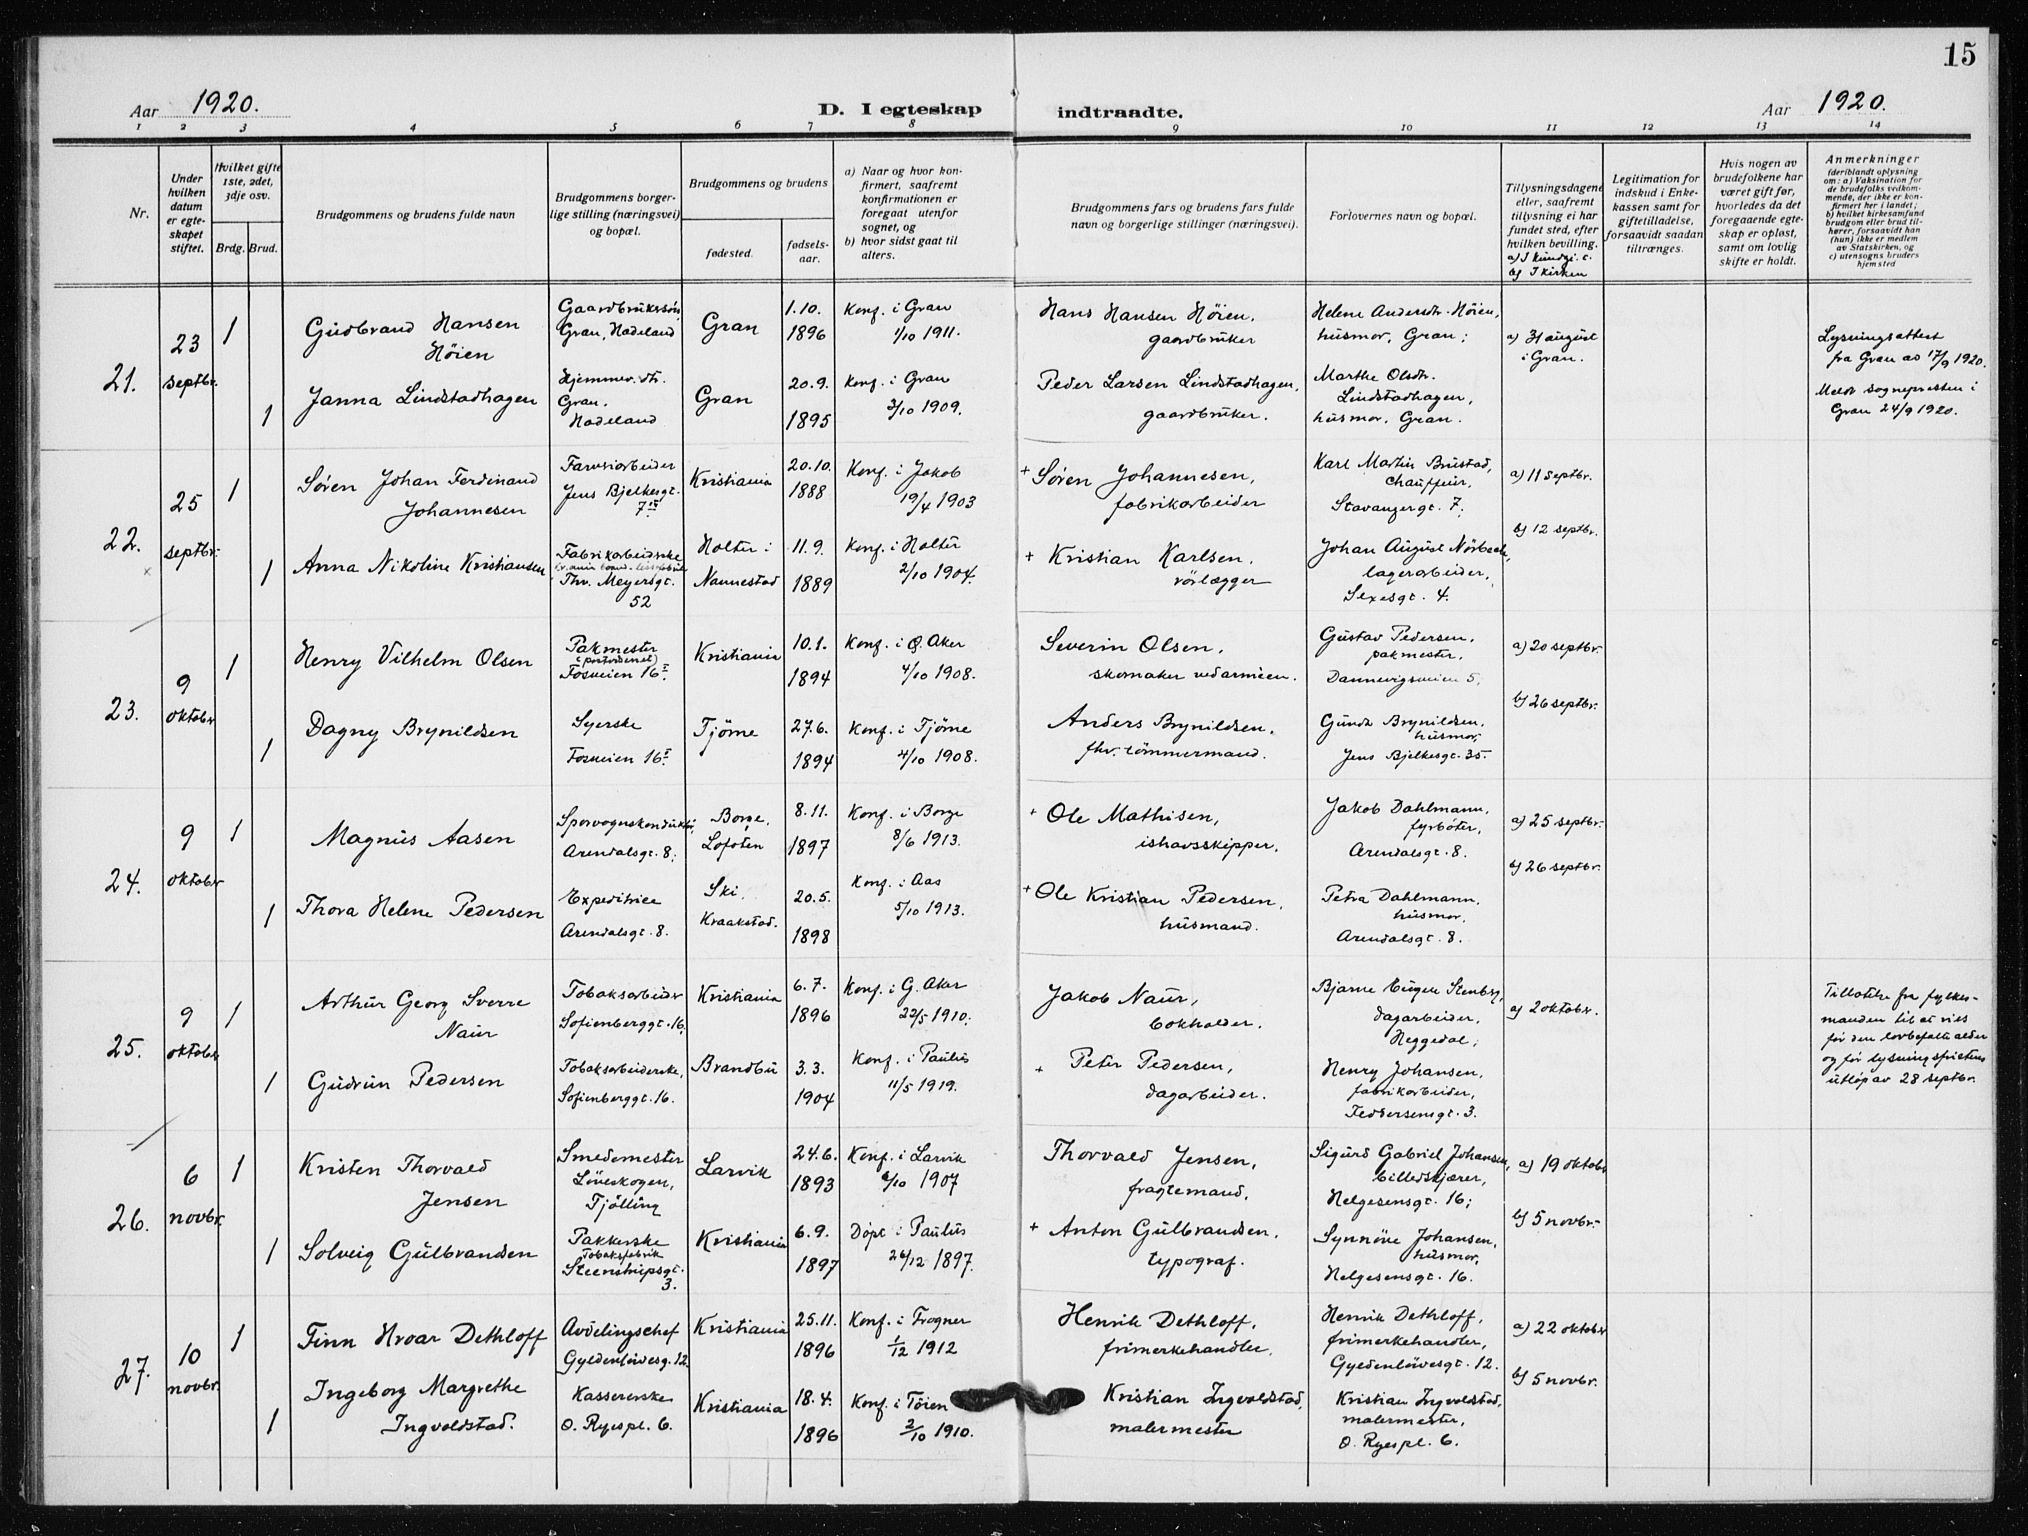 15
Aar 1920.
D. I egteskap indtraadte.
Aar 1920.
1 2 3 4 5 6 7 8 9 10 11 12 13 14
Nr.
Under hvilken datum er egteskapet stiftet.
Hvilket gifte 1ste, 2det, 3dje osv.
Brdg. Brud.
Brudgommens og brudens fulde navn
Brudgommens borgerlige stilling (næringsvei) og bopæl.
Brudgommens og brudens
fødested.
fødselsaar.
a) Naar og hvor konfirmert, saafremt konfirmationen er foregaat utenfor sognet, og
b) hvor sidst gaat til alters.
Brudgommens fars og brudens fars fulde navn og borgerlige stillinger (næringsvei).
Forlovernes navn og bopæl.
Tillysningsdagene eller, saafremt tillysning ei har fundet sted, efter hvilken bevilling.
b) I kirken
Legitimation for indskud i Enkekassen samt for giftetilladelse, forsaavidt saadan tiltrænges.
Hvis nogen av brudefolkene har været gift før, hvorledes da det foregaaende egteskap er opløst, samt om lovlig skifte er holdt.
Anmerkninger
(deriblandt oplysning om: a) Vaksination for de brudefolks vedkommende, der ikke er konfirmert her i landet;
b) hvilket kirkesamfund brudgom eller brud tilhører, forsaavidt han (hun) ikke er medlem av Statskirken, og
c) utensogns bruders hjemsted
21.
23 septbr.
1
Gudbrand Hansen Höien
Gaardbrukersön, Gran, Hadeland
Gran
1.10. 1896
Konf. i Gran 1/10 1911.
Hans Hansen Höien, gaardbruker
Helene Andersdtr. Höien, husmor, Gran;
a) 31 august i Gran.
Lysningsattest fra Gran av 17/9 1920.
Meldt sognepresten i Gran 24/9 1920.
1
Janna Lindstadhagen
Hjemmev. dtr. Gran, Hadeland
Gran
20.9. 1895
Konf. i Gran 3/10 1909.
Peder Larsen Lindstadhagen, gaardbruker.
Marthe Olsdtr. Lindstadhagen, husmor, Gran.
22.
25 septbr.
1
Søren Johan Ferdinand Johannesen
Farveriarbeider Jens Bjelkesgt. 7 IV
Kristiania
20.10. 1888
Konf. i Jakob 19/4 1903
+ Søren Johannesen, fabrikarbeider
Karl Martin Brustad, chauffeur, Stavangergt. 7;
a) 11 septbr.
b) 12 septbr.
1
Anna Nikoline Kristiansen
Fabrikarbeiderske Thv. Meyersgt. 52
Holter i Nannestad
11.9. 1889
Konf. i Holter 2/10 1904.
+ Kristian Karlsen, rörlægger
Johan August Nörbech, lagerarbeider, Sexesgt. 4.
23.
9 oktobr.
1
Henry Vilhelm Olsen
Pakmester Fosveien 16 I
Kristiania
10.1. 1894
Konf. i Ø. Aker 4/10 1908.
Severin Olsen, skomaker ved armeen.
Gustav Pedersen, pakmester, Dannevigsveien 5;
a) 20 septbr.
b) 26 septbr.
1
Dagny Brynildsen
Syerske Fosveien 16 I
Tjøme
27.6. 1894
Konf. i Tjøme 4/10 1908.
Anders Brynildsen, fhv. tömmermand.
Gunda Brynildsen, husmor, Jens Bjelkesgt. 35.
24.
9 oktobr.
1
Magnus Aasen
Sporvognskonduktör, Arendalsgt. 8;
Borge, Lofoten
8.11. 1897
Konf. i Borge 8/6 1913.
+ Ole Mathisen, ishavsskipper.
Jakob Dahlmann, fyrböter, Arendalsgt. 8.
a) 25 septbr.
b) 26 septbr.
1
Thora Helene Pedersen
Expeditrice Arendalsgt. 8.
Ski, Kraakstad.
20.5. 1898
Konf. i Aas 5/10 1913.
+ Ole Kristian Pedersen, husmand.
Petra Dahlmann, husmor, Arendalsgt. 8.
25.
9 oktobr
1
Arthur Georg Sverre Naur
Tobaksarbeider Sofienberggt. 16.
Kristiania
6.7. 1896
Konf. i G. Aker 22/5 1910.
Jakob Naur, bokholder.
Bjarne Eugen Stenberg, dagarbeider, Heggedal;
a) 2 oktobr.
Tillatelse fra fylkesmanden til at vies før den lovbefalte alder og før lysningsfristens utløp av 28 septbr.
1
Gudrun Pedersen
Tobaksarbeiderske, Sofienberggt. 16.
Brandbu
3.3. 1904
Konf. i Paulus 11/5 1919.
+ Peter Pedersen, dagarbeider.
Henry Johansen, fabrikarbeider, Feddersensgt. 3.
26.
6 novbr.
1
Kristen Thorvald Jensen
Smedemester Löveskogen, Tjölling
Larvik
24.6. 1893
Konf. i Larvik 6/10 1907
Thorvald Jensen, fragtemand,
Sigurd Gabriel Johansen, billedskjærer, Helgesensgt. 16;
a) 19 oktobr
b) 5 novbr.
1
Solveig Gulbrandsen
Pakkerske Tobaksfabrik Steenstrupsgt. 3.
Kristiania
6.9. 1897
Döpt i Paulus 26/12 1897.
+ Anton Gulbrandsen, typograf.
Synnöve Johansen, husmor, Helgesensgt. 16.
27.
10 novbr.
1
Finn Hroar Dethloff
Avdelingschef Gyldenlövesg. 12
Kristiania
25.11. 1896
Konf. i Frogner 1/12 1912
Henrik Dethloff, frimerkehandler.
Henrik Dethloff, frimerkehandler, Gyldenlövesgt. 12.
a) 22 oktobr
b) 5 novbr.
1
Ingeborg Margrethe Ingvoldstad.
Kassererske O. Ryespl. 6.
Kristiania
18.4. 1896
Konf. i Töien 2/10 1910.
Kristian Ingvoldstad, malermester
Kristian Ingvoldstad, malermester, O. Ryespl. 6.